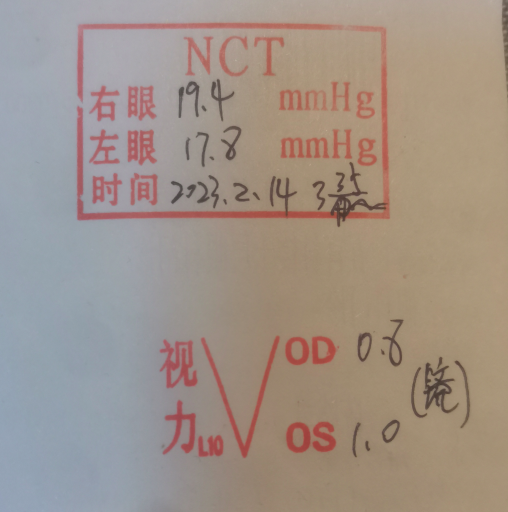 NCT
右眼 19.4 mmHg
左眼 17.8 mmHg
时间 2023.2.14 3 35
视力 L10 V OD 0.8
OS 1.0